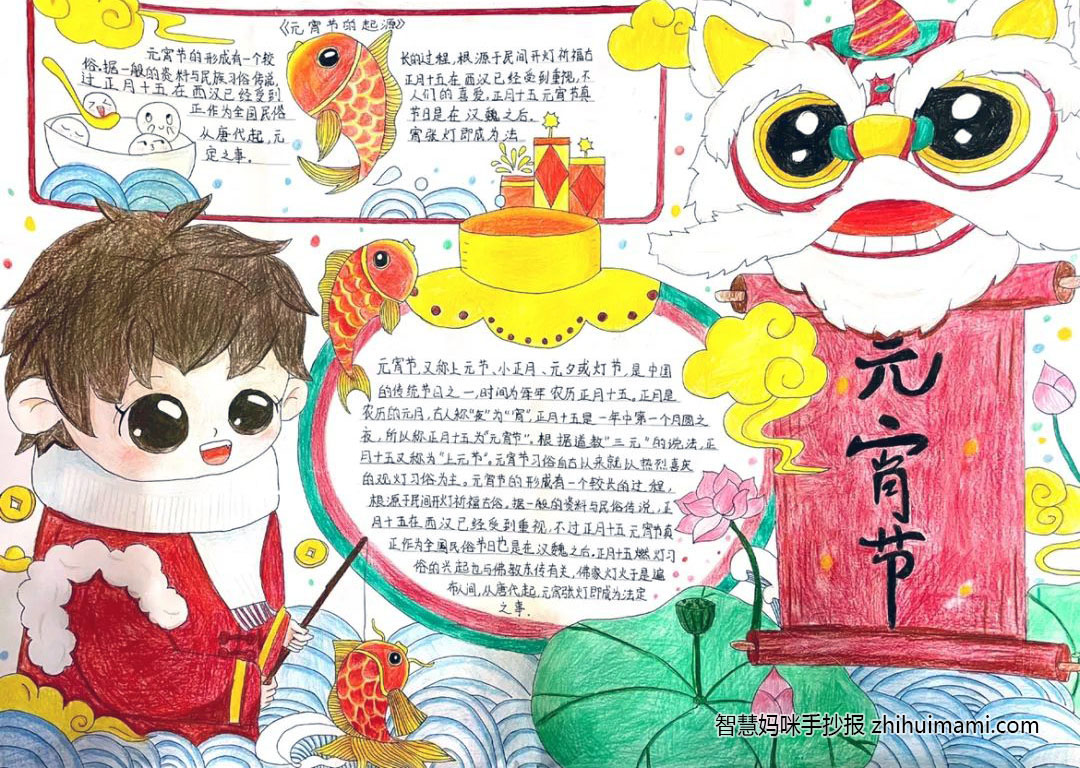 《元宵节的起源》
元宵节的形成有一个较
俗.据一般的资料与民族习俗传说,
过正月十五在西汉已经受到
正作为全国民俗
从唐代起,元
定之事.
长的过程,根源于民间开灯祈福古
正月十五在西汉已经受到重视,不
人们的喜爱,正月十五元宵节真
节日是在汉魏之后.
宵张灯即成为法
元宵节,又称上元节、小正月、元夕或灯节,是中国
的传统节日之一,时间为每年农历正月十五,正月是
农历的元月,古人称"夜"为"宵",正月十五是一年中第一个月圆之
夜,所以称正月十五为"元宵节".根据道教"三元"的说法,正
月十五又称为"上元节".元宵节习俗自古以来就以热烈喜庆
的观灯习俗为主.元宵节的形成有一个较长的过程,
根源于民间开灯祈福古俗.据一般的资料与民俗传说,正
月十五在西汉已经受到重视,不过正月十五元宵节真
正作为全国民俗节日也是在汉魏之后.正月十五燃灯习
俗的兴起也与佛教东传有关,佛家灯火于是遍
布人间,从唐代起,元宵张灯即成为法定
之事.
元宵节
智慧妈咪手抄报 zhihuimami.com